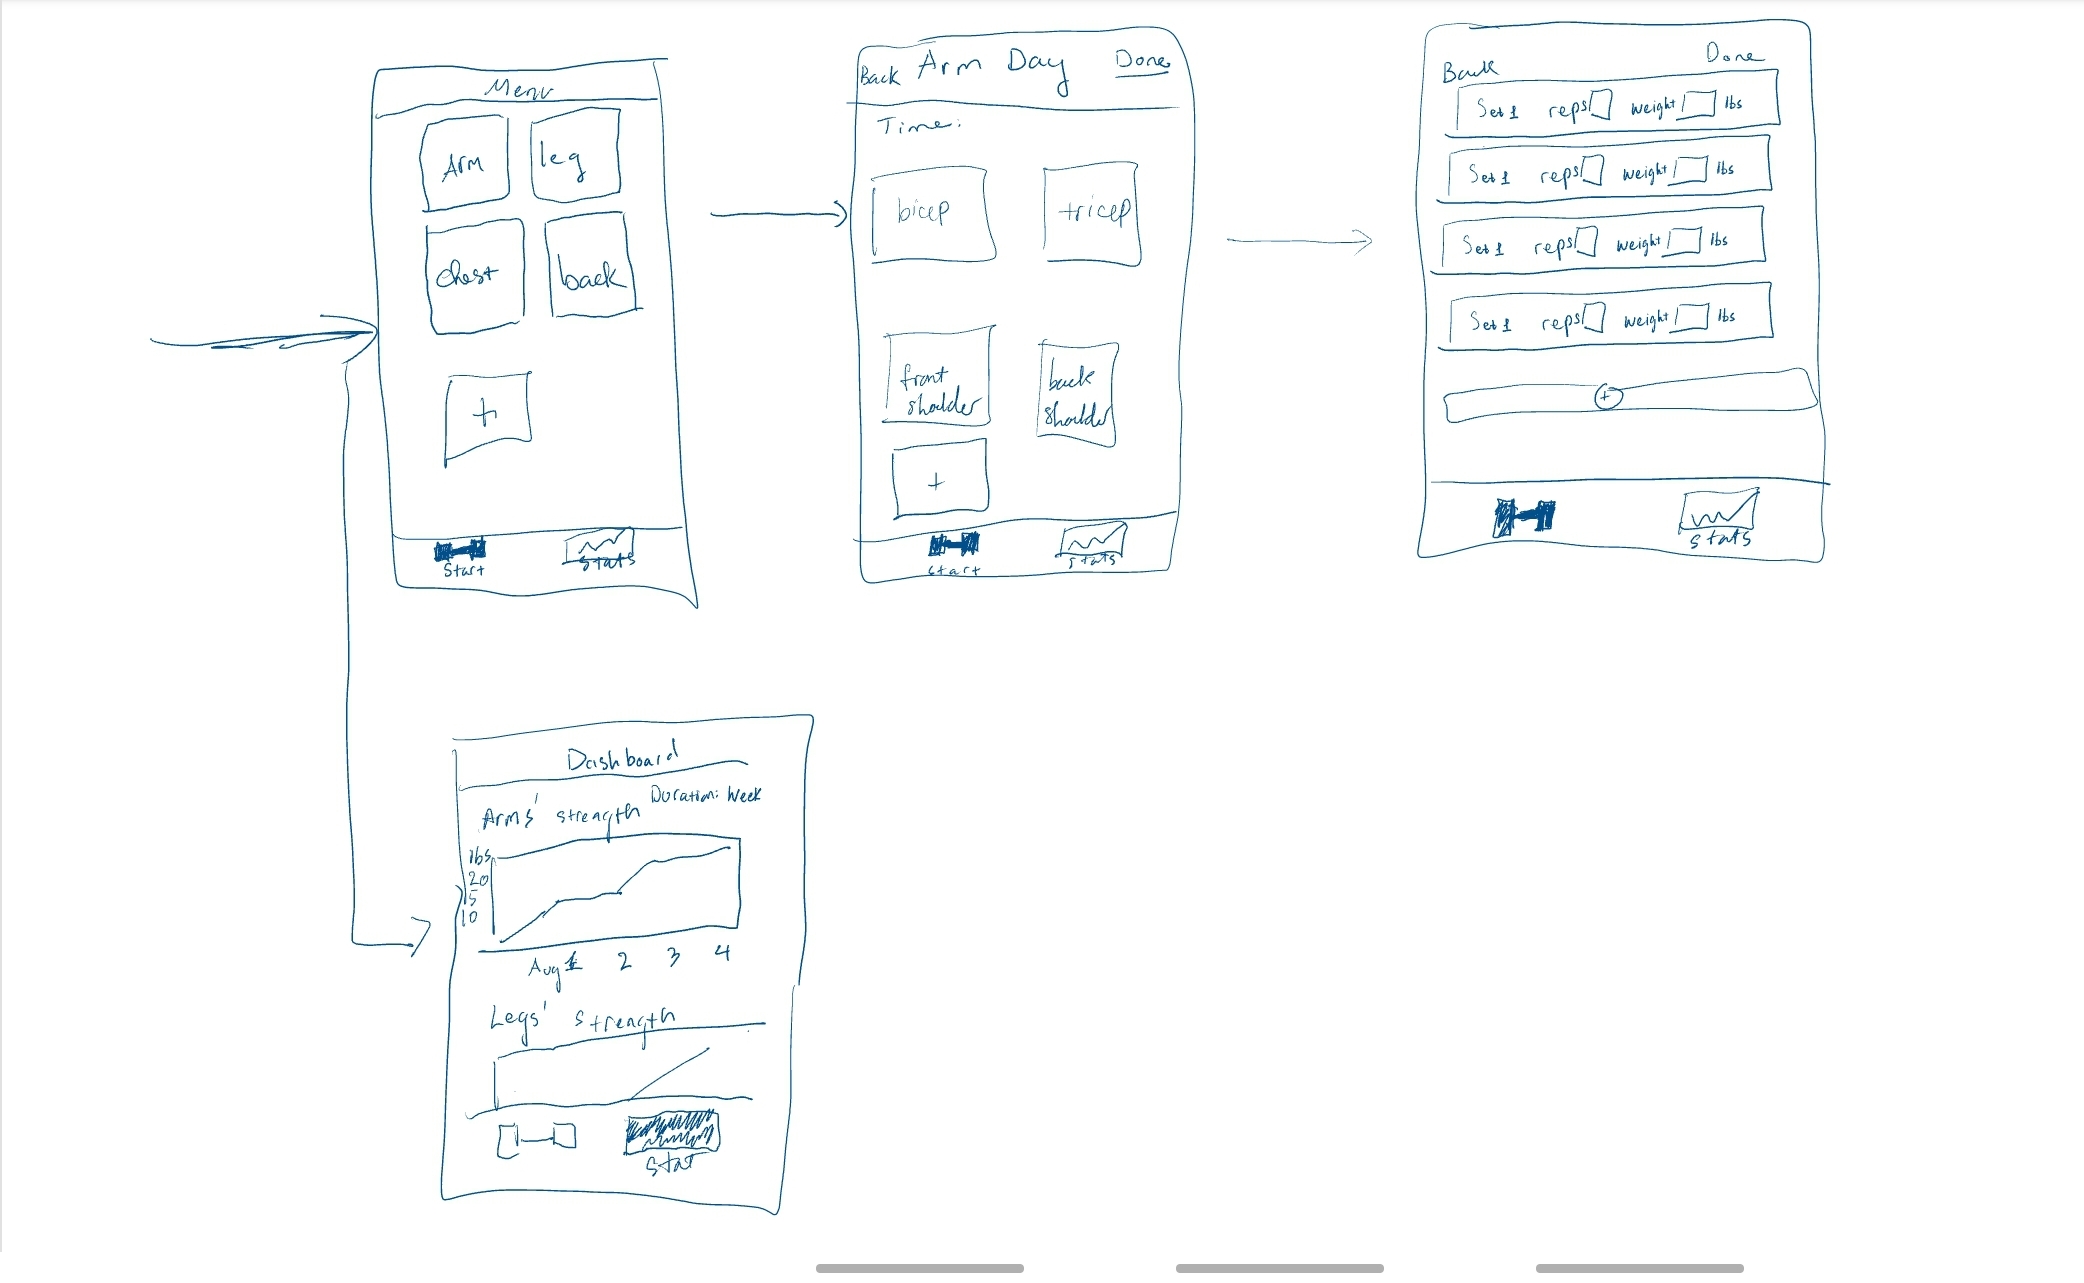 Menu
Arm
leg
chest
back
+
Start
Stats
Back Arm Day Done
Time:
bicep
tricep
front
shoulder
back
shoulder
+
Start
Stats
Back Done
Set 1 reps weight lbs
Set 1 reps weight lbs
Set 1 reps weight lbs
Set 1 reps weight lbs
+
Stats
Dashboard
Arms' strength Duration: Week
lbs
20
15
10
Aug 1 2 3 4
Legs' strength
Stat